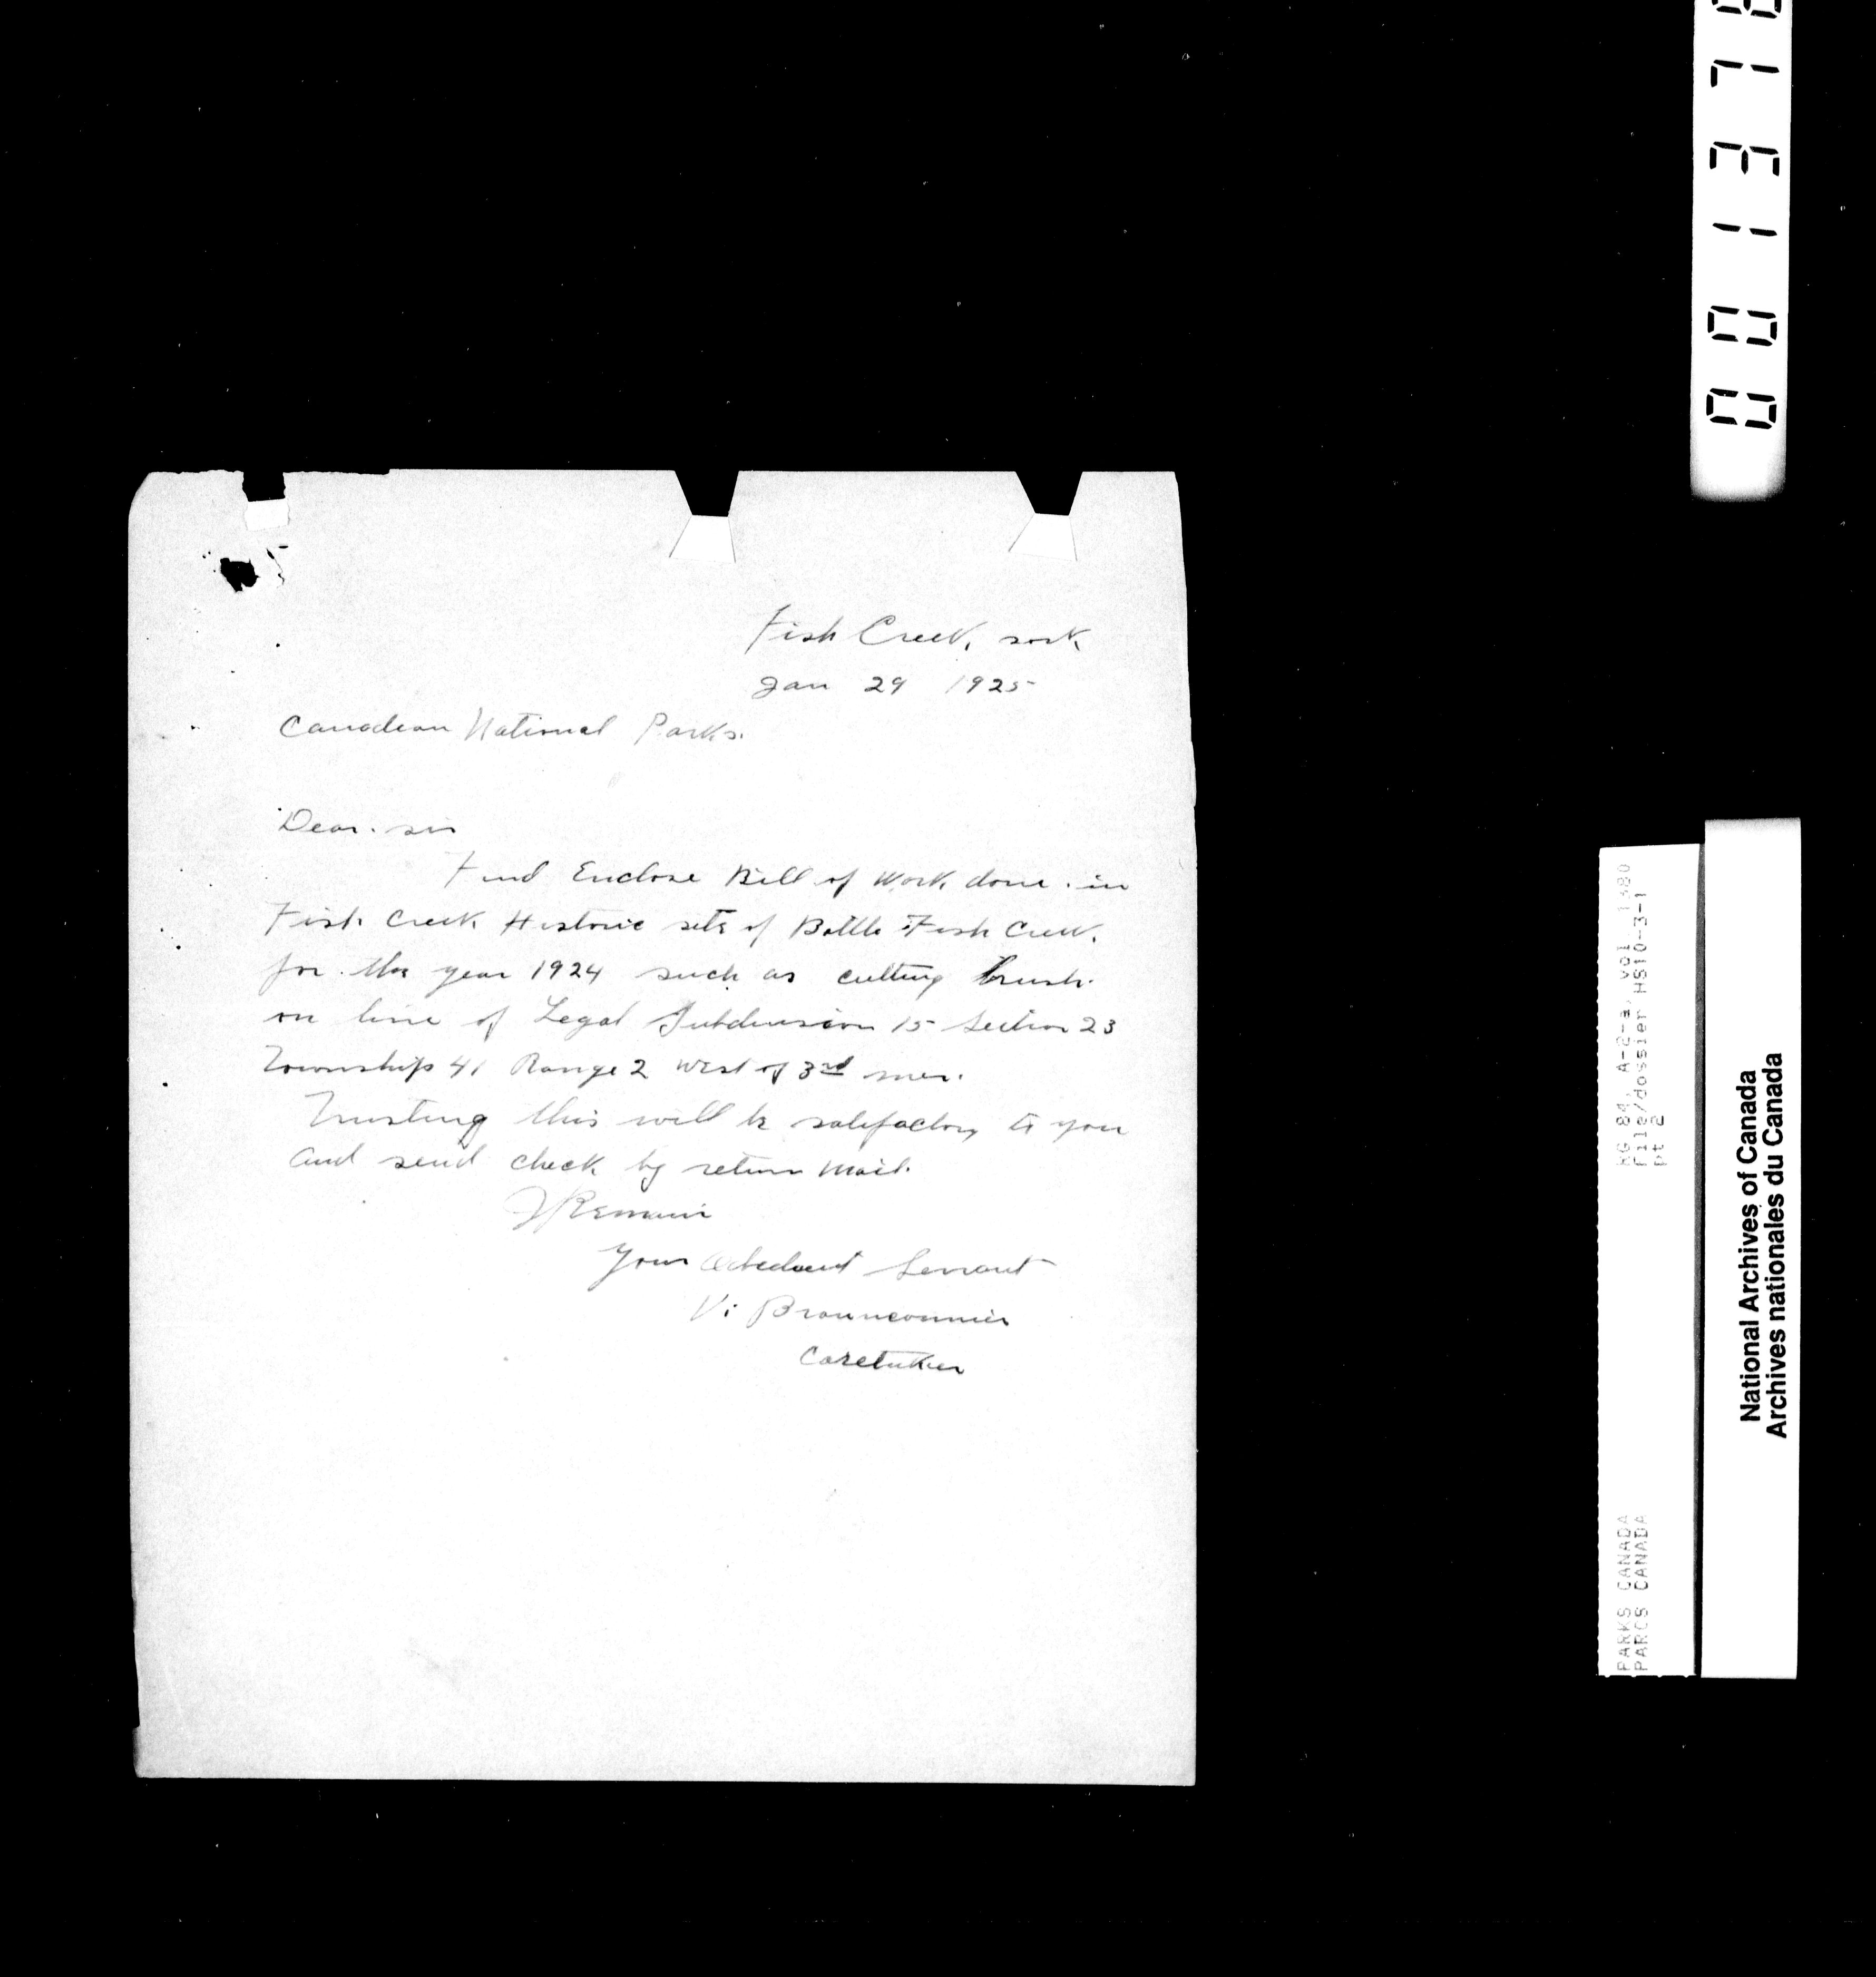 Fish Creek, sask
Jan 29 1925
Canadian National Parks.
Dear. sir
Find Enclose Bill of Work done. in
Fish Creek Historic site of Battle Fish Creek.
for the year 1924 such as cutting brush.
on line of Legal Subdivision 15 Section 23
Township 41 Range 2 West of 3rd mer.
Trusting this will be satifactory to you
and send check by return mail.
I Remain
Your Obedient Servant
V. Brounconnier
Caretaker
001378
RG 84, A-2-a, vol 1380
File/dossier HS10-3-1
pt 2
PARKS CANADA
PARCS CANADA
National Archives of Canada
Archives nationales du Canada